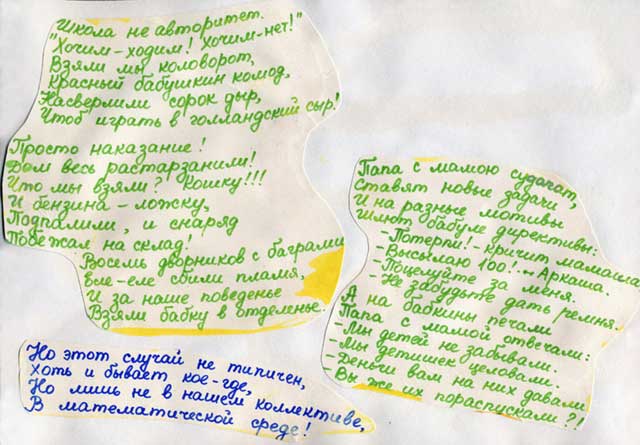 Школа не авторитет.
"Хочим-ходим! Хочим-нет!"
Взяли мы коловорот,
Красный бабушкин комод,
Насверлили сорок дыр,
Чтоб играть в голландский сыр!
Просто наказание!
Дом весь растарзанили!
Что мы взяли? Кошку!!!
И бензина - ложку,
Подпалили, и снаряд
Побежал на склад!
Восемь дворников с баграми
Еле-еле сбили пламя,
И за наше поведенье
Взяли бабку в отделенье.
Но этот случай не типичен,
Хоть и бывает кое-где,
Но лишь не в нашем коллективе,
В математической среде!
Папа с мамою судачат,
Ставят новые задачи
И на разные мотивы
Шлют бабуле директивы:
- Потерпи! - кричит мамаша
- Высылаю 100! - Аркаша.
- Поцелуйте за меня.
- Не забудьте дать ремня.
А на бабкины печали
Папа с мамой отвечали:
- Мы детей не забывали.
Мы детишек целовали.
- Деньги вам на них давали
- Вы же их пораспускали?!